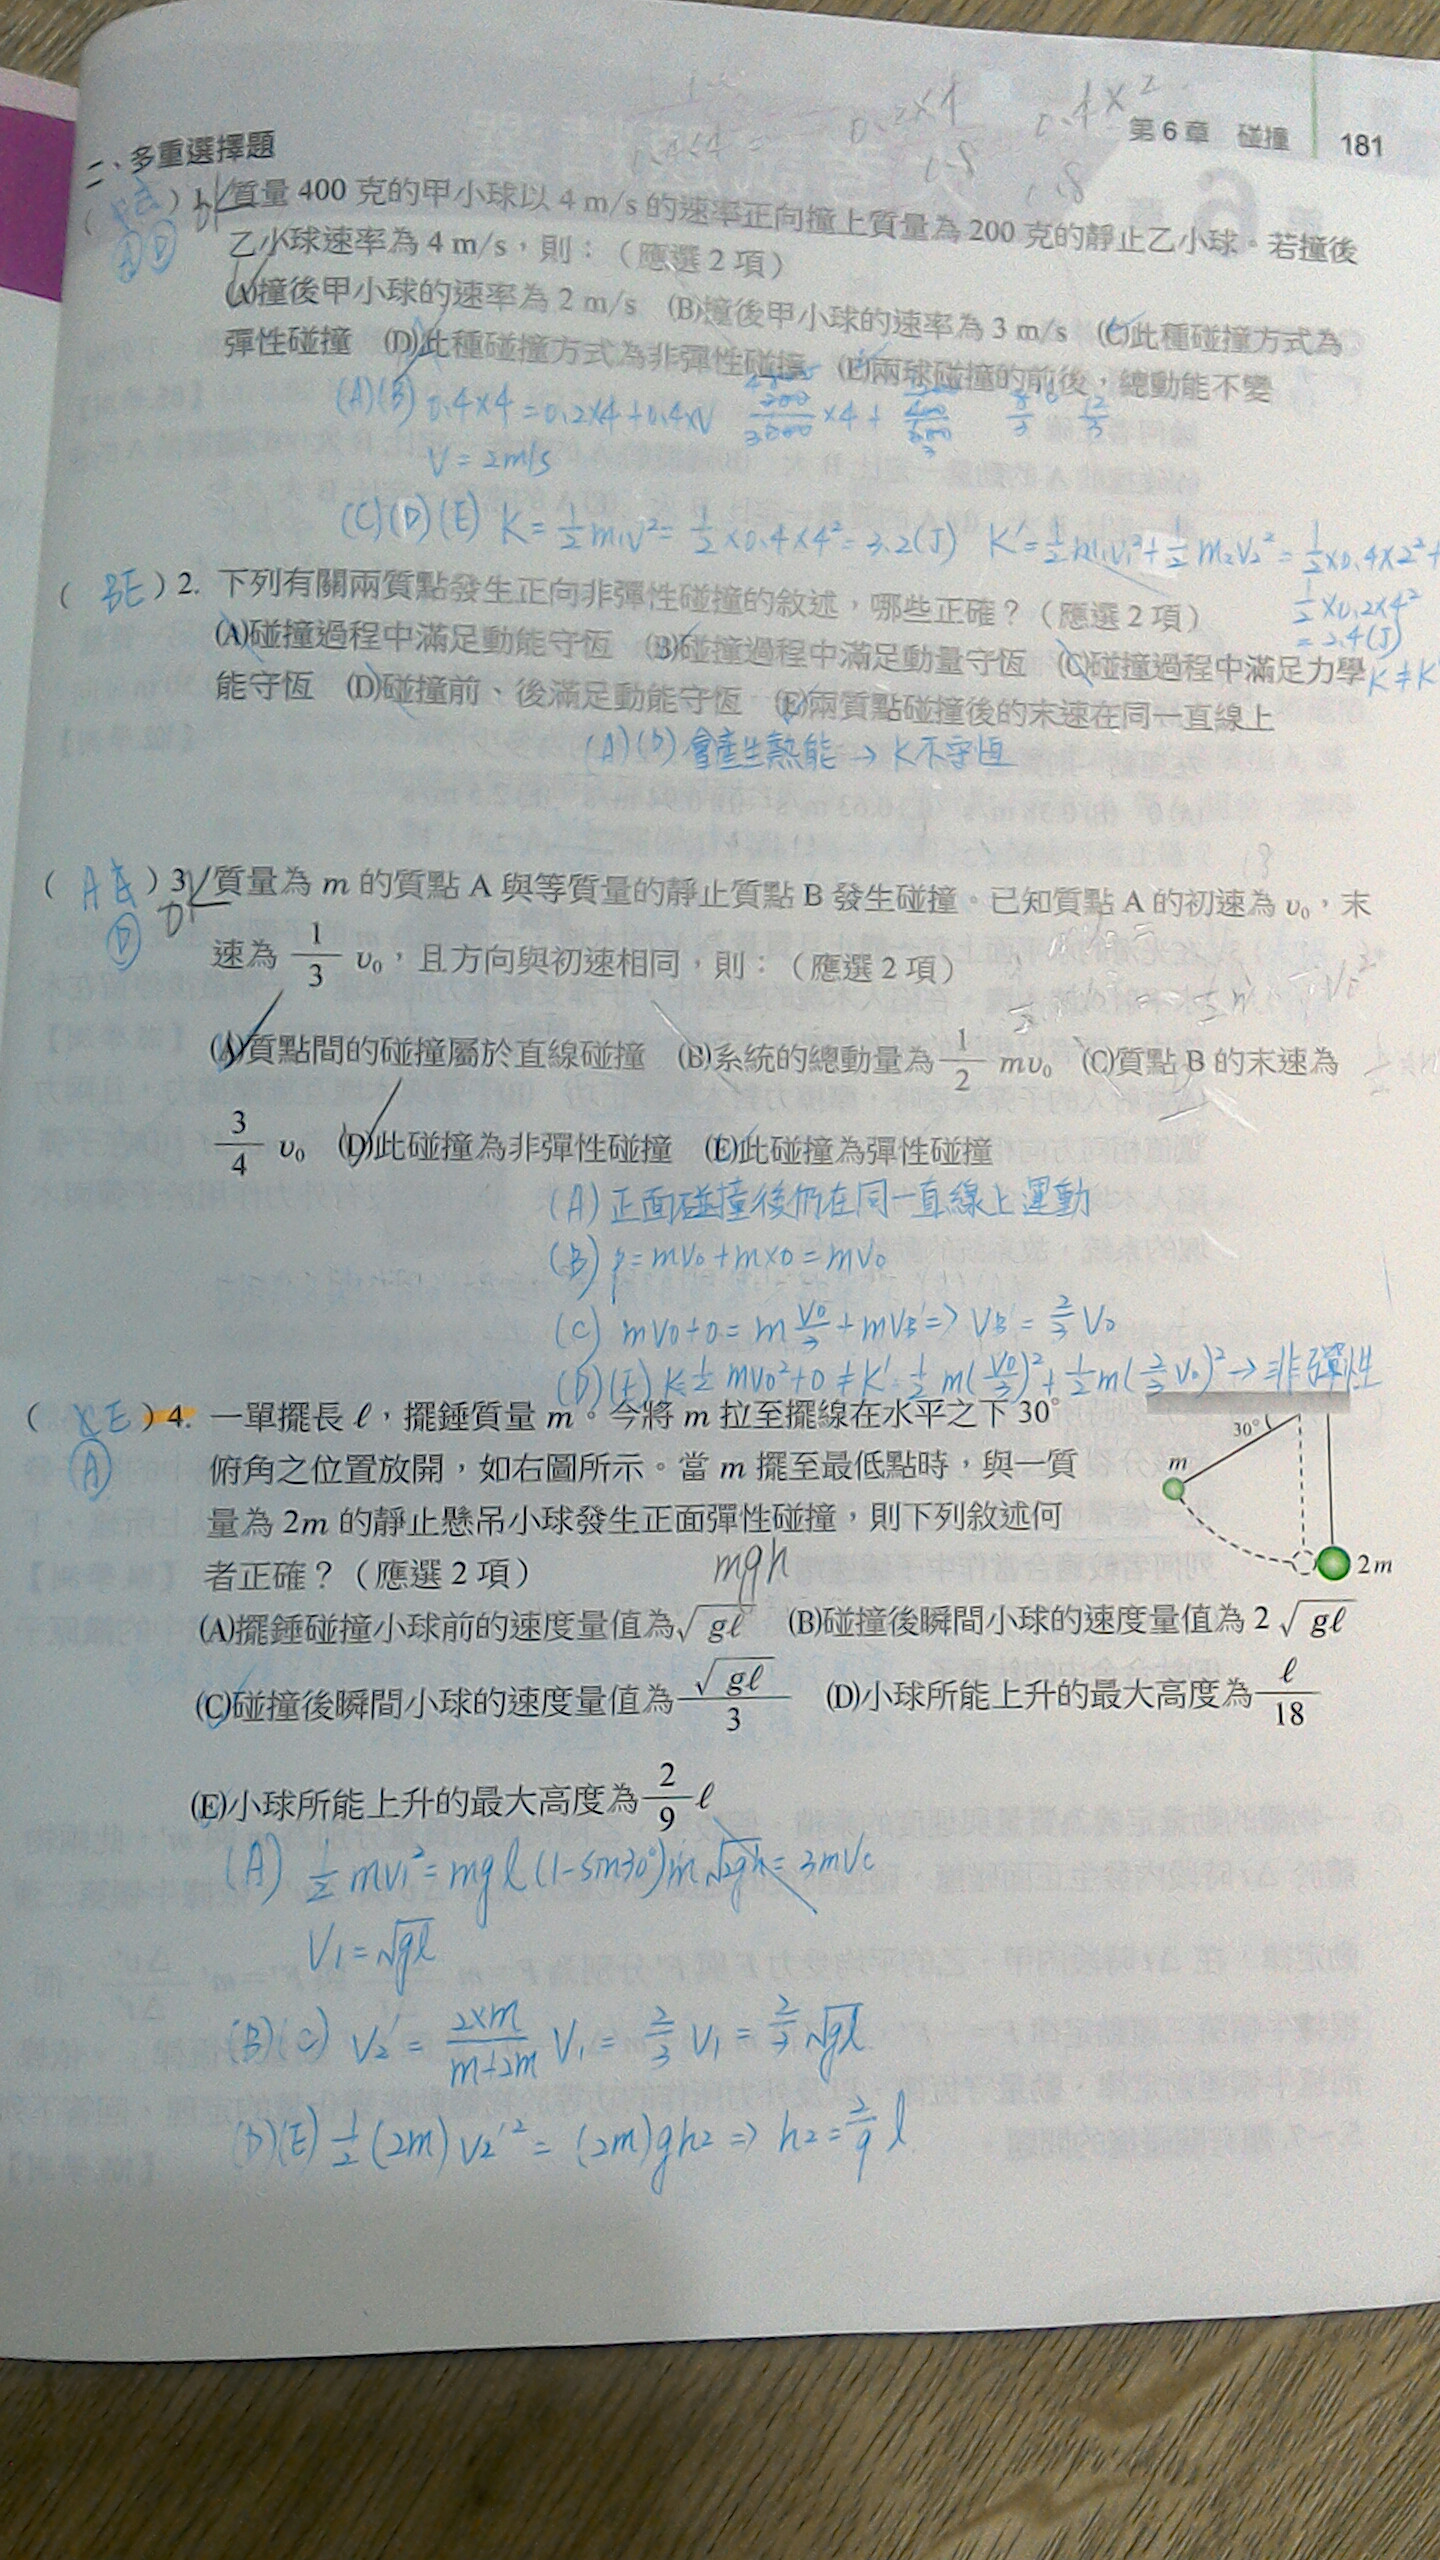 第 6 章 碰撞 181
0.2×4 0.4×2
二、多重選擇題
( ) 1. 質量 400 克的甲小球以 4 m/s 的速率正向撞上質量為 200 克的靜止乙小球。若撞後
AD
乙小球速率為 4 m/s，則：（應選 2 項）
(A)撞後甲小球的速率為 2 m/s (B)撞後甲小球的速率為 3 m/s (C)此種碰撞方式為
彈性碰撞 (D)此種碰撞方式為非彈性碰撞 (E)兩球碰撞的前後，總動能不變
(A)(B) 0.4×4=0.2×4+0.4×V
V=2m/s
(C)(D)(E) K=½m₁v²=½×0.4×4²=3.2(J) K'=½m₁v₁²+½m₂v₂²=½×0.4×2²+
½×0.2×4²
=2.4(J)
K≠K'
( BE ) 2. 下列有關兩質點發生正向非彈性碰撞的敘述，哪些正確？（應選 2 項）
(A)碰撞過程中滿足動能守恆 (B)碰撞過程中滿足動量守恆 (C)碰撞過程中滿足力學
能守恆 (D)碰撞前、後滿足動能守恆 (E)兩質點碰撞後的末速在同一直線上
(A)(D) 會產生熱能→K不守恆
( A E ) 3. 質量為 m 的質點 A 與等質量的靜止質點 B 發生碰撞。已知質點 A 的初速為 υ₀，末
D
速為 1/3 υ₀，且方向與初速相同，則：（應選 2 項）
(A)質點間的碰撞屬於直線碰撞 (B)系統的總動量為 1/2 mυ₀ (C)質點 B 的末速為
3/4 υ₀ (D)此碰撞為非彈性碰撞 (E)此碰撞為彈性碰撞
(A) 正面碰撞後仍在同一直線上運動
(B) p=mv₀+m×0=mv₀
(C) mv₀+0=m v₀/3+mvB'⇒VB'=2/3 V₀
(D)(E) K=½mv₀²+0≠K'=½m(v₀/3)²+½m(2/3 v₀)²→非彈性
( E ) 4. 一單擺長 ℓ，擺錘質量 m。今將 m 拉至擺線在水平之下 30°
A
俯角之位置放開，如右圖所示。當 m 擺至最低點時，與一質
量為 2m 的靜止懸吊小球發生正面彈性碰撞，則下列敘述何
者正確？（應選 2 項）
mgh
30°
m
2m
(A)擺錘碰撞小球前的速度量值為√gℓ (B)碰撞後瞬間小球的速度量值為 2√gℓ
(C)碰撞後瞬間小球的速度量值為 √gℓ/3 (D)小球所能上升的最大高度為 ℓ/18
(E)小球所能上升的最大高度為 2/9 ℓ
(A) ½mv₁²=mgl(1-sin30°) m√2gh=3mVc
V₁=√gl
(B)(C) V₂'=2×m/(m+2m) V₁=2/3 V₁=2/3 √gl
(D)(E) ½(2m)v₂'²=(2m)gh₂⇒h₂=2/9 l